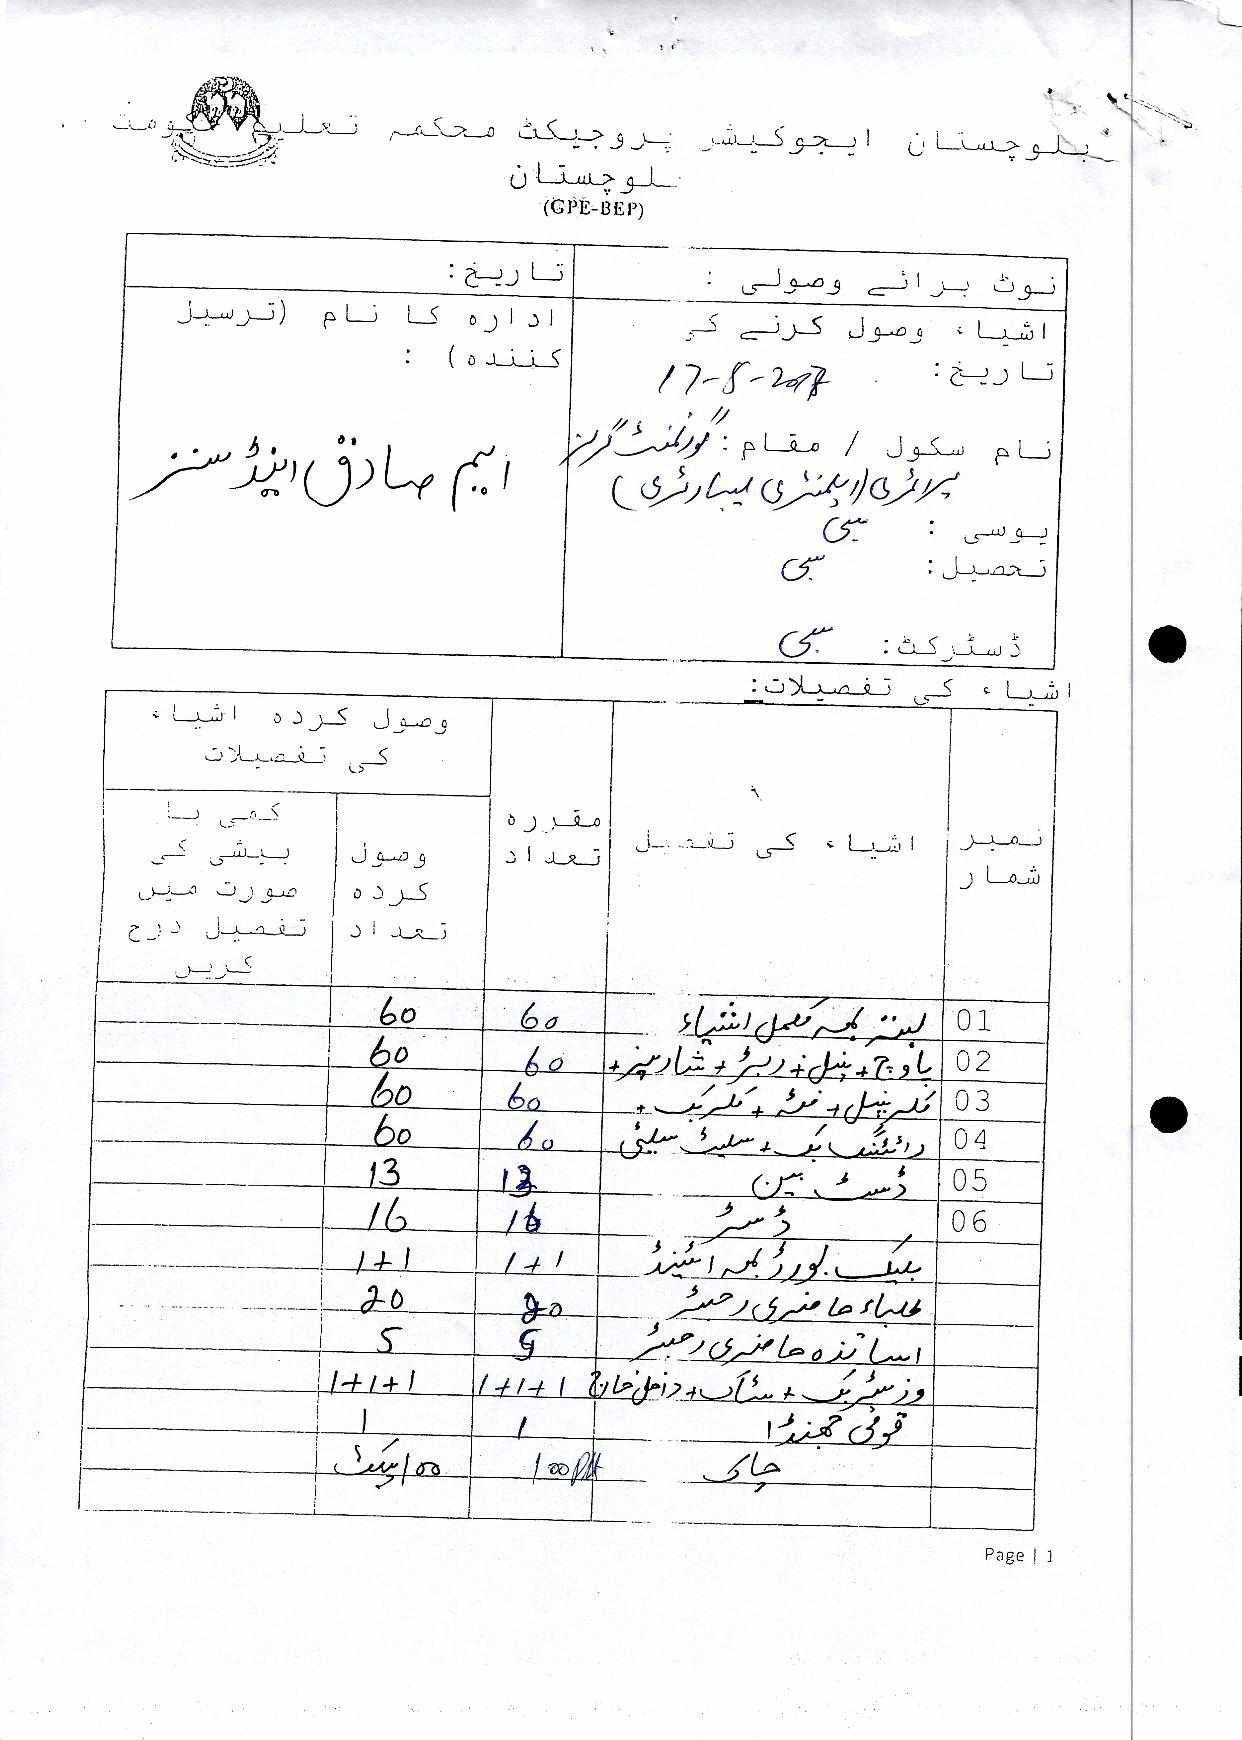 بلوچستان ایجوکیشن پروجیکٹ محکمہ تعلیم حکومت
بلوچستان
(GPE-BEP)
نوٹ برائے وصولی : تاریخ:
اشیاء وصول کرنے کی تاریخ: 17-8-2017
ادارہ کا نام (ترسیل کنندہ) :
ایم صادق اینڈ سنز
نام سکول / مقام : گورنمنٹ گرلز
پرائمری (ایلمنٹری لیبارٹری)
یوسی : سبی
تحصیل: سبی
ڈسٹرکٹ: سبی
اشیاء کی تفصیلات:
نمبر شمار اشیاء کی تفصیل مقررہ تعداد وصول کردہ اشیاء کی تفصیلات
وصول کردہ تعداد کمی یا بیشی کی صورت میں تفصیل درج کریں
01 بستہ بمعہ مکمل اشیاء 60 60
02 پاوچ + پنسل + ربڑ + شارپنر + 60 60
03 کلر پنسل + فٹہ + کلر بک + 60 60
04 رائٹنگ بک + سلیٹ سلیٹی 60 60
05 ڈسٹ بین 13 13
06 ڈسٹر 16 16
بلیک بورڈ بمعہ اسٹینڈ 1+1 1+1
طلباء حاضری رجسٹر 20 20
اساتذہ حاضری رجسٹر 5 5
وزیٹر بک + سٹاک + داخل خارج 1+1+1 1+1+1
قومی جھنڈا 1 1
چاک 100 Pkt 100 پیکٹ
Page | 1